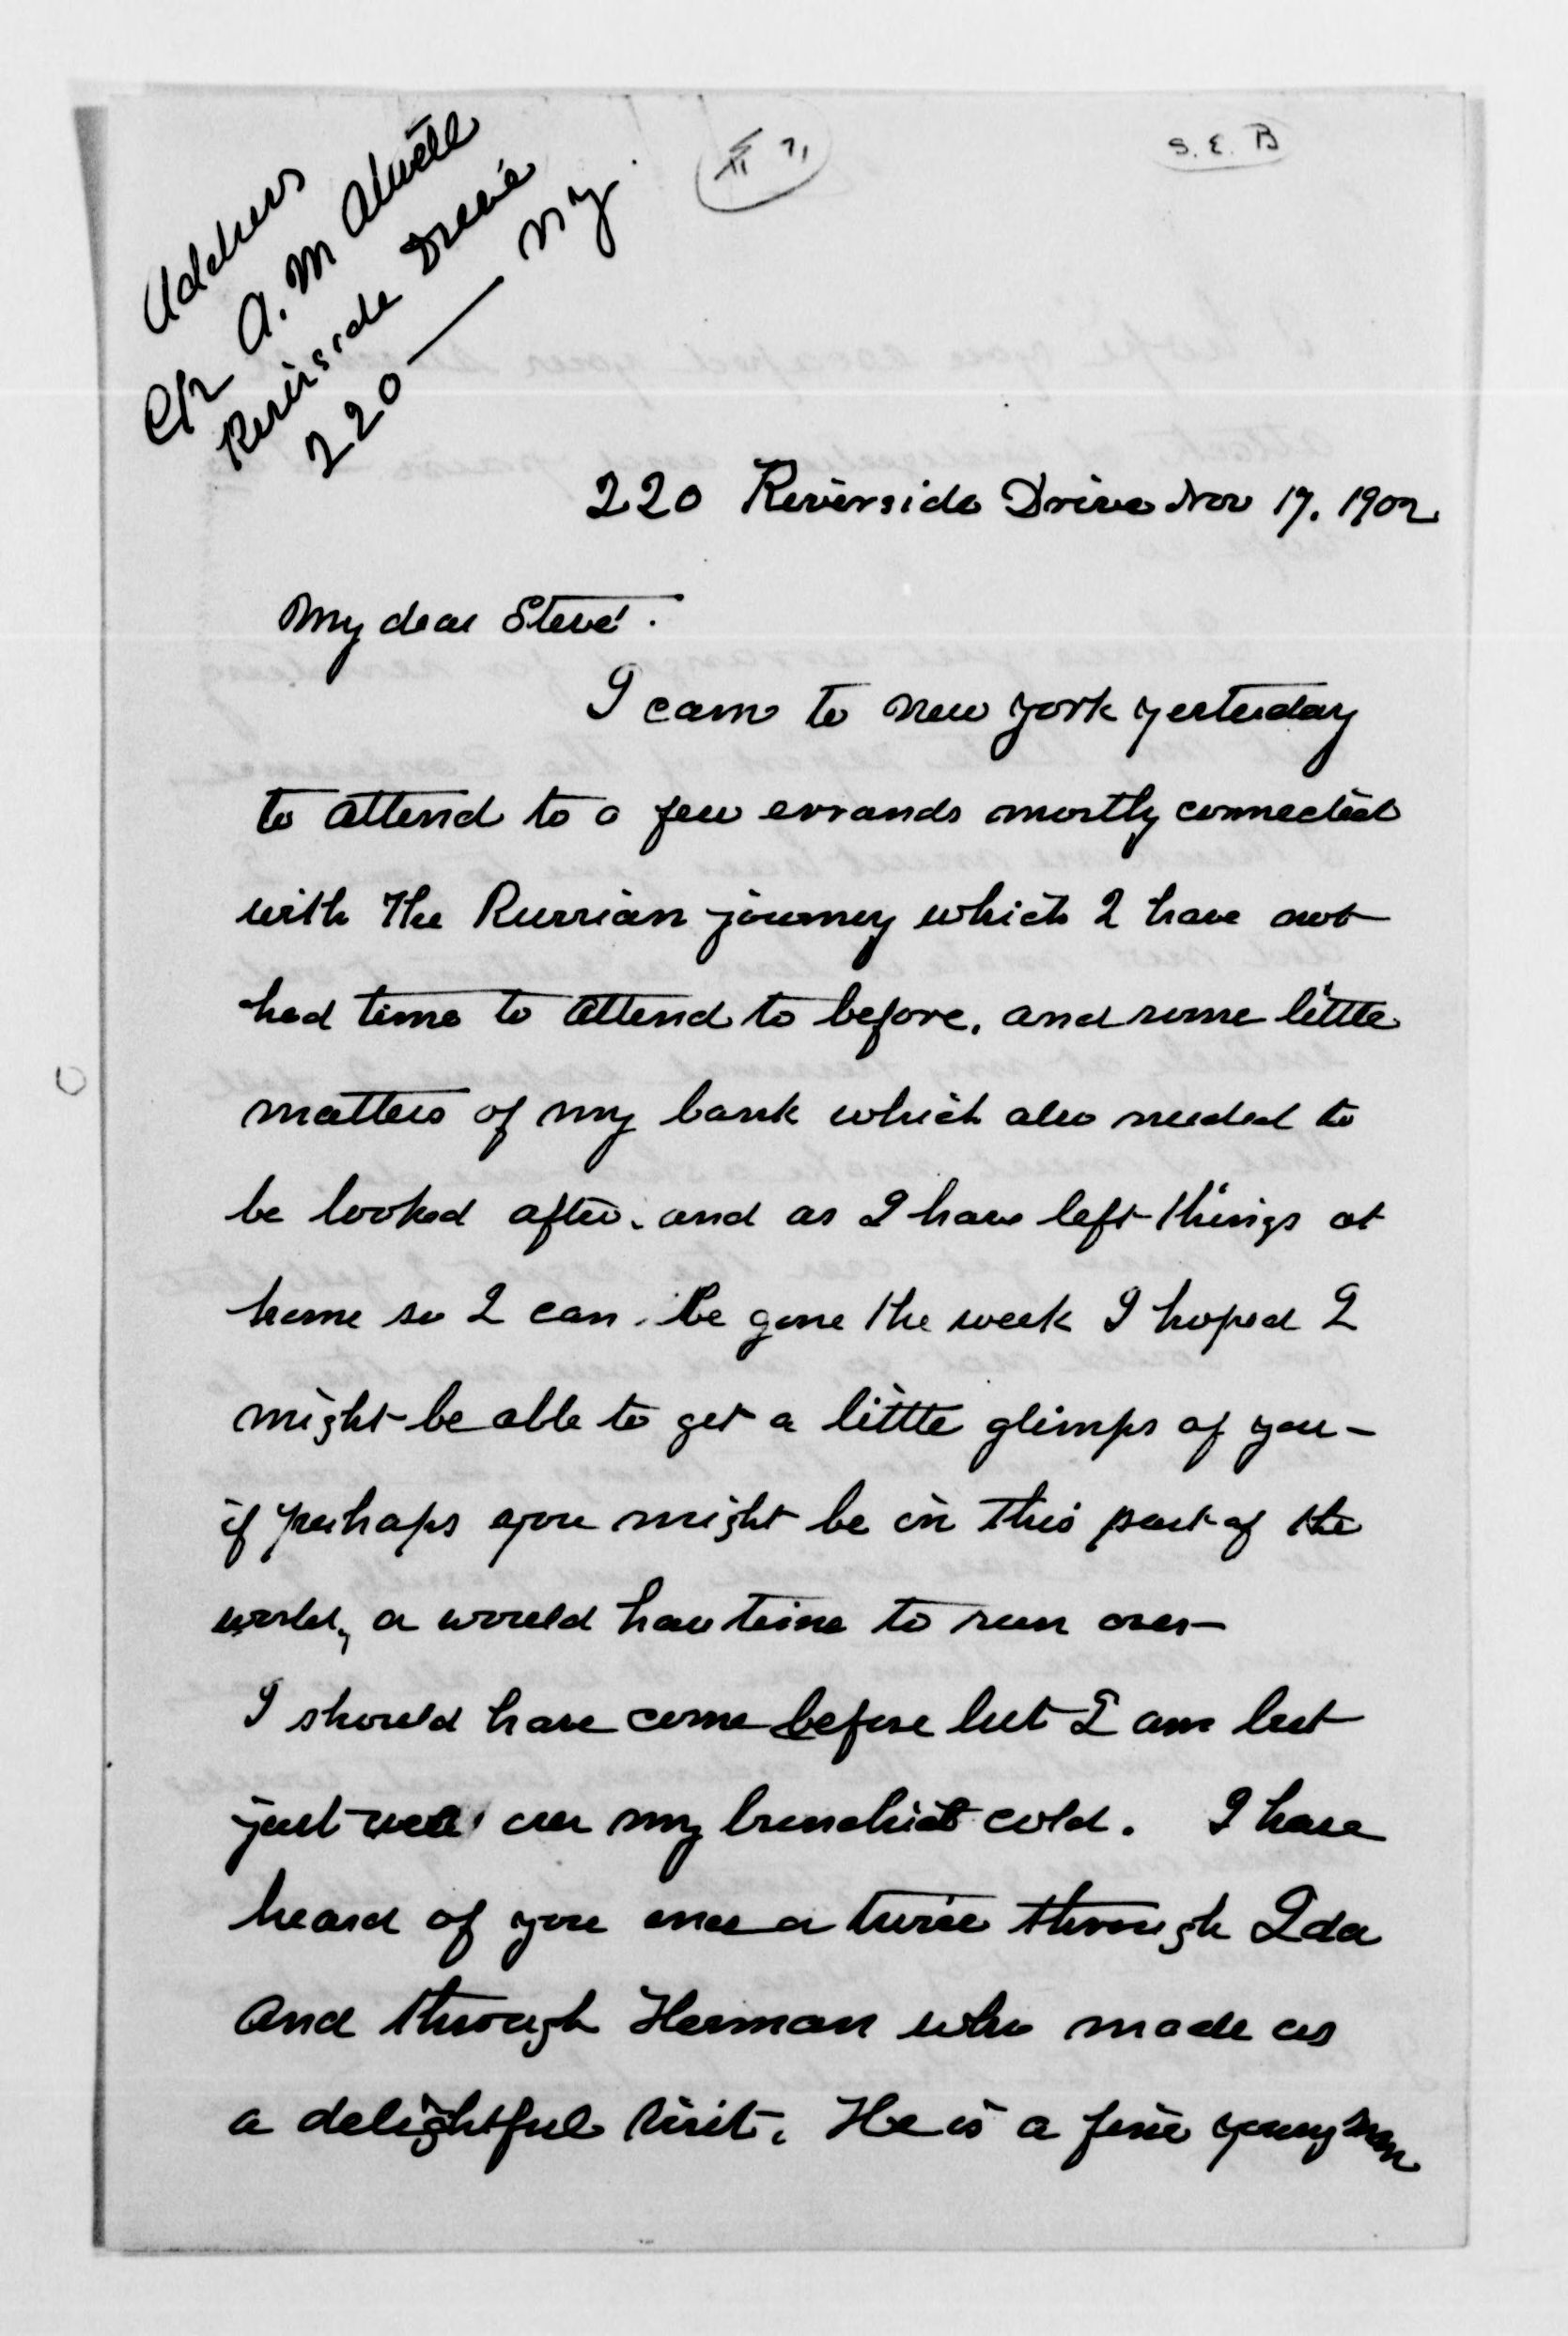 Address
A. M Atwell
Riverside Drive
220 — N Y.
S. E. B
220 Riverside Drive Nov 17. 1902
My dear Steve.
I came to New York yesterday
to attend to a few errands mostly connected
with the Russian journey which I have not
had time to attend to before, and some little
matters of my bank which also needed to
be looked after. and as I have left things at
home so I can be gone the week I hoped I
might be able to get a little glimps of you –
if perhaps you might be in this part of the
world, or would have time to run over –
I should have come before but I am but
just well over my bronchial cold. I have
heard of you once or twice through Ida
and through Herman who made us
a delightful visit. He is a fine young man